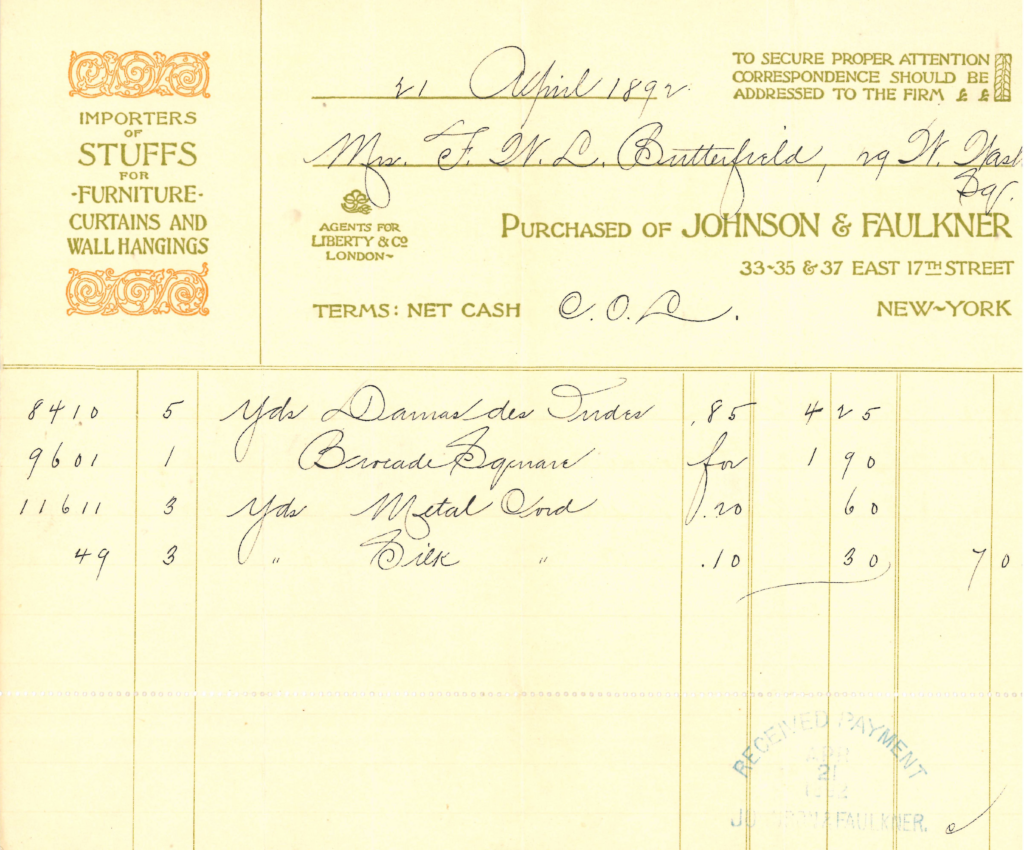 IMPORTERS
OF
STUFFS
FOR
-FURNITURE-
CURTAINS AND
WALL HANGINGS
21 April 1892.
TO SECURE PROPER ATTENTION
CORRESPONDENCE SHOULD BE
ADDRESSED TO THE FIRM
Mrs. F. W. L. Butterfield, 29 W. Wash
Sq.
AGENTS FOR
LIBERTY & CO
LONDON~
PURCHASED OF JOHNSON & FAULKNER
33-35 & 37 EAST 17TH STREET
TERMS: NET CASH C.O.D.
NEW~YORK
8410 5 Yds Damas des Indes .85 4 25
9601 1 Brocade Square for 1 90
11611 3 Yds Metal Cord .20 60
49 3 " Silk " .10 30 7 0
RECEIVED PAYMENT
APR
21
1892
JOHNSON & FAULKNER.